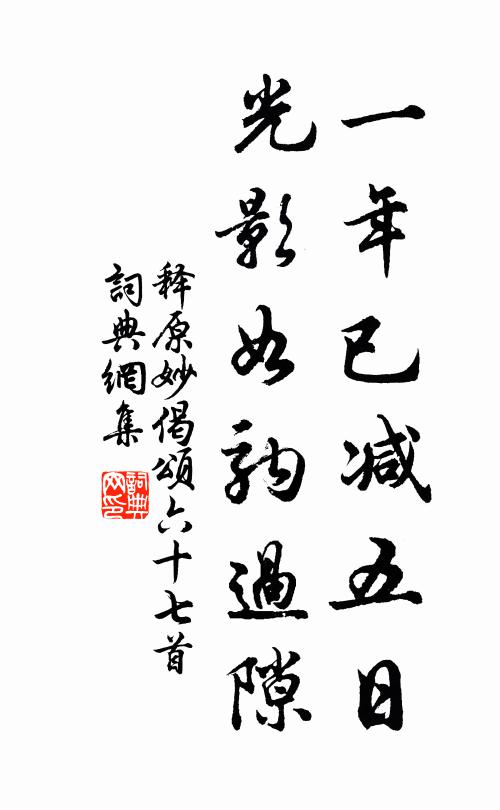 一年已減五日
光影如駒過隙
释原妙偈頌六十七首
詞典網集
詞典网印